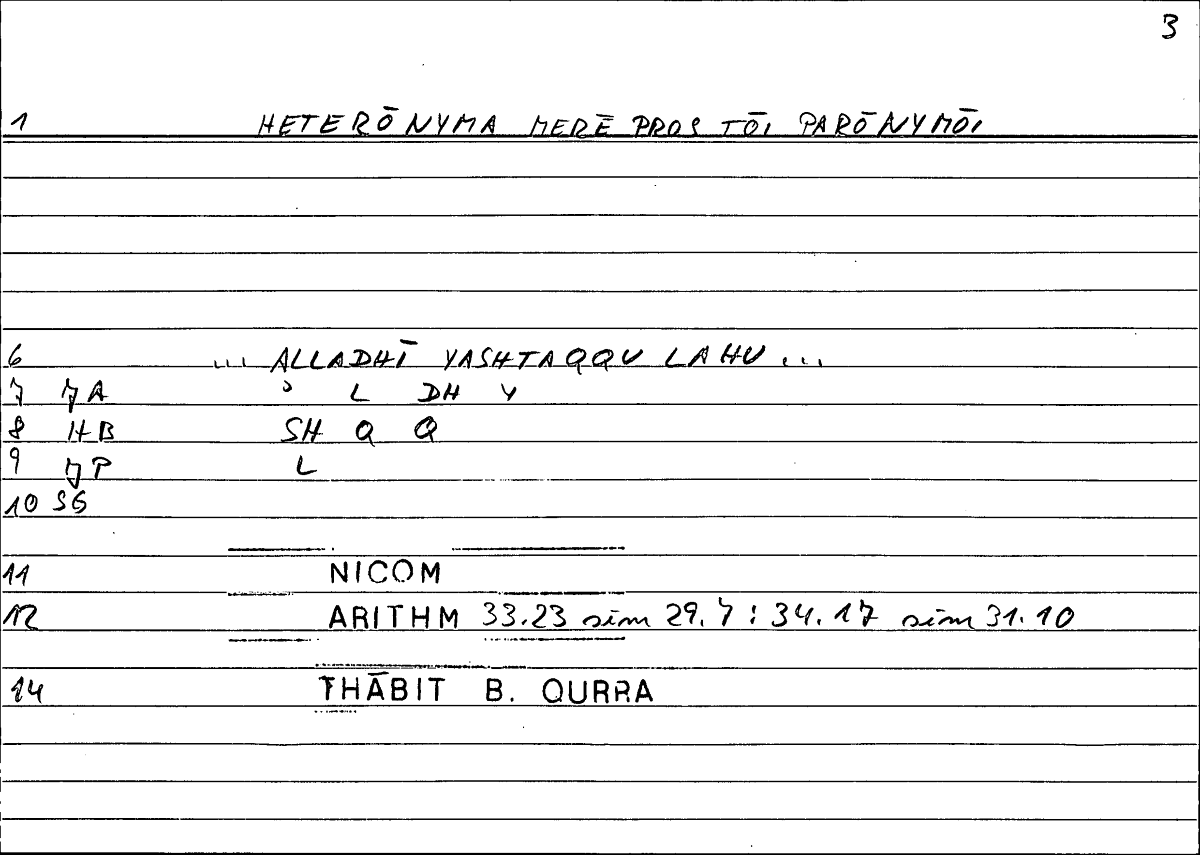 3
1 HETERŌNYMA MERĒ PROS TŌI PARŌNYMŌI
6 ... ALLADHĪ YASHTAQQU LAHU ...
7 7A ʾ L DH Y
8 HB SH Q Q
9 7P L
10 SG
11 NICOM
12 ARITHM 33.23 sim 29.7 : 34.17 sim 31.10
14 THĀBIT B. QURRA